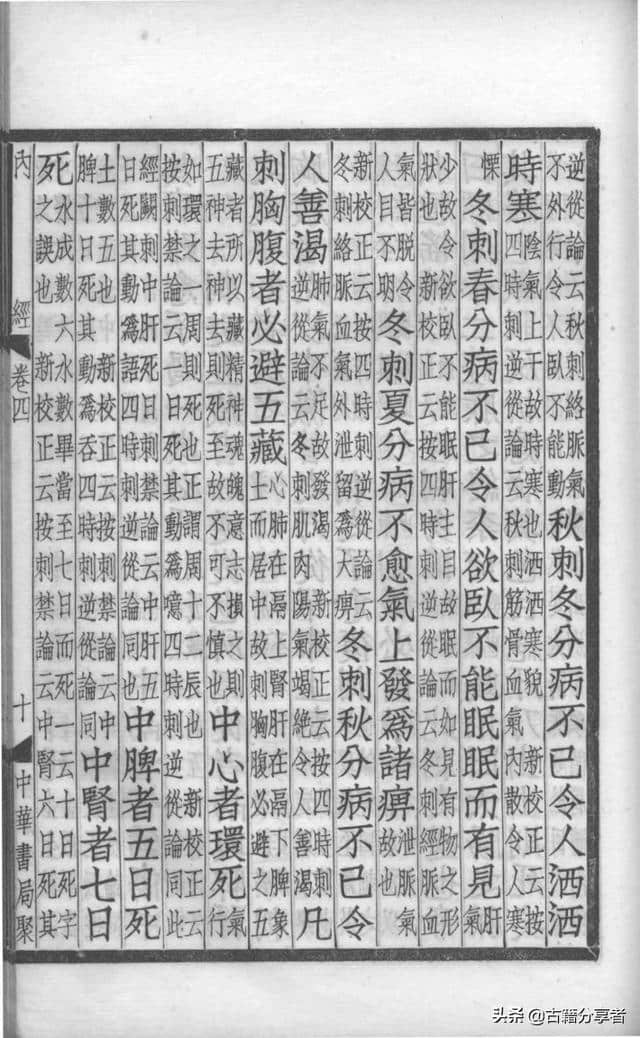 逆從論云秋刺絡脈氣不外行令人臥不能動秋刺冬分病不已令人洒洒
時寒陰氣上干故時寒也洒洒寒貌 新校正云按四時刺逆從論云秋刺筋骨血氣內散令人寒
慄冬刺春分病不已令人欲臥不能眠眠而有見肝氣
少故令欲臥不能眠肝主目故眠而如見有物之形狀也 新校正云按四時刺逆從論云冬刺經脈血
氣皆脫令人目不明冬刺夏分病不愈氣上發爲諸痹泄脈氣故也
新校正云按四時刺逆從論云冬刺絡脈血氣外泄留爲大痹冬刺秋分病不已令
人善渴肺氣不足故發渴 新校正云按四時刺逆從論云冬刺肌肉陽氣竭絕令人善渴凡
刺胸腹者必避五藏心肺在鬲上腎肝在鬲下脾象土而居中故刺胸腹必避之五
藏者所以藏精神魂魄意志損之則五神去神去則死至故不可不慎也中心者環死氣行
如環之一周則死也正謂周十二辰也 新校正云按刺禁論云一日死其動爲噫四時刺逆從論同此
經闕刺中肝死日刺禁論云中肝五日死其動爲語四時刺逆從論同也中脾者五日死
土數五也 新校正云按刺禁論云中脾十日死其動爲吞四時刺逆從論同中腎者七日
死水成數六水數畢當至七日而死一云十日死字之誤也 新校正云按刺禁論云中腎六日死其
內經 卷四 十 中華書局聚
头条 @古籍分享者